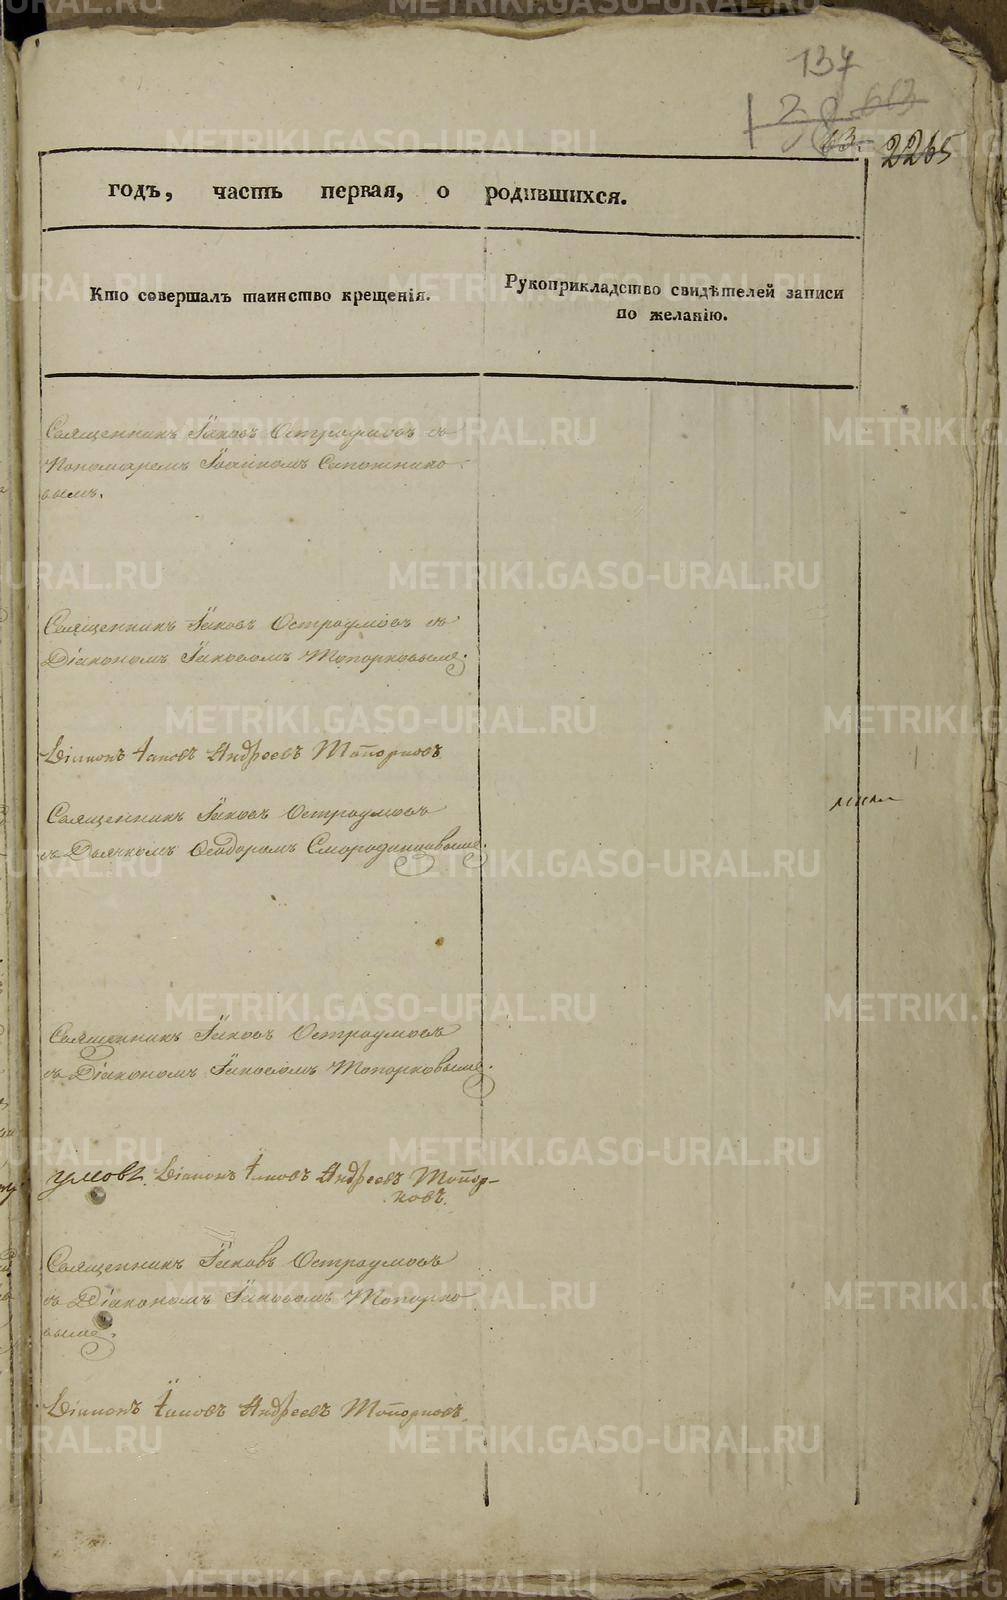 137
28 663
63.
2265
годъ, часть первая, о родившихся.
Кто совершалъ таинство крещенія.
Рукоприкладство свидѣтелей записи
по желанію.
Священникъ Іаковъ Остроумовъ съ
Пономаремъ Іоанномъ Сапожнико
вымъ.
Священникъ Іаковъ Остроумовъ съ
Діакономъ Іаковомъ Топорковымъ.
Діаконъ Іаковъ Андреевъ Топорковъ
Священникъ Іаковъ Остроумовъ
съ Дьячкомъ Ѳеодоромъ Смородинцовымъ.
Священникъ Іаковъ Остроумовъ
съ Діакономъ Іаковомъ Топорковымъ.
умовъ. Діаконъ Іаковъ Андреевъ Топор-
ковъ.
Священникъ Іаковъ Остроумовъ
съ Діакономъ Іаковомъ Топорко
вымъ.
Діаконъ Іаковъ Андреевъ Топорковъ.
METRIKI.GASO-URAL.RU